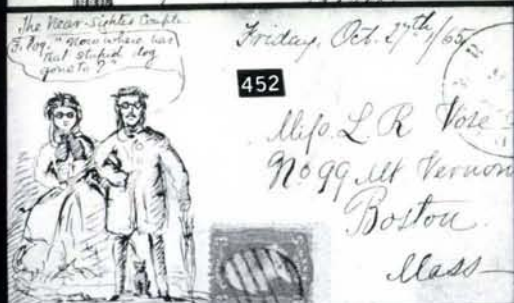 The Near-Sighted Couple.
"Now where has
that stupid dog
gone to?"
Friday, Oct. 27th /65
452
Miss. L. R Vose
No 99 Mt Vernon
Boston
Mass